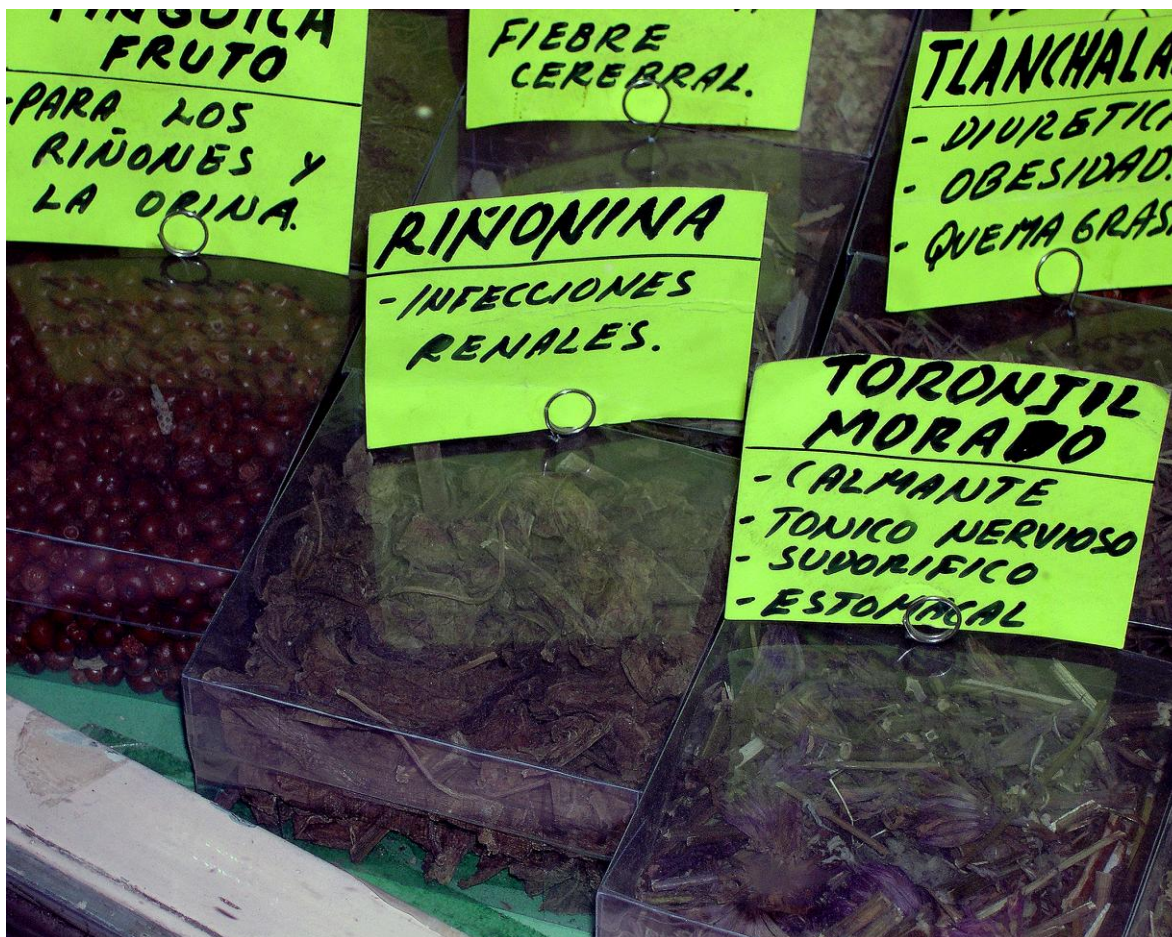 PINGUICA
FRUTO
-PARA LOS
RIÑONES Y
LA ORINA.
FIEBRE
CEREBRAL.
TLANCHALA
- DIURETICA
- OBESIDAD.
- QUEMA GRASA
RIÑONINA
-INFECCIONES
RENALES.
TORONJIL
MORADO
- CALMANTE
- TONICO NERVIOSO
- SUDORIFICO
- ESTOMACAL